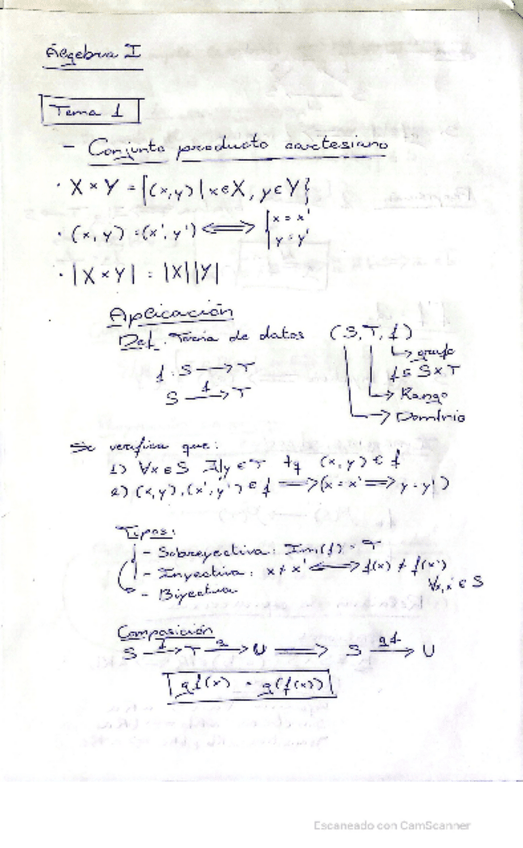 Álgebra I
Tema 1
- Conjunto producto cartesiano
· X × Y = {(x,y) | x ∈ X, y ∈ Y}
· (x,y) = (x',y') ⟺ { x = x'
y = y'
· |X × Y| = |X||Y|
Aplicación
Def. Terna de datos (S,T,f)
↳ grafo
f: S → T
f ⊆ S×T
S —f→ T
↳ Rango
↳ Dominio
Se verifica que:
1) ∀x ∈ S ∃!y ∈ T tq (x,y) ∈ f
2) (x,y),(x',y') ∈ f ⟹ (x = x' ⟹ y = y')
Tipos:
- Sobreyectiva: Im(f) = T
- Inyectiva: x ≠ x' ⟺ f(x) ≠ f(x')
∀x,x' ∈ S
- Biyectiva
Composición
S —f→ T —g→ U ⟹ S —gf→ U
gf(x) = g(f(x))
Escaneado con CamScanner